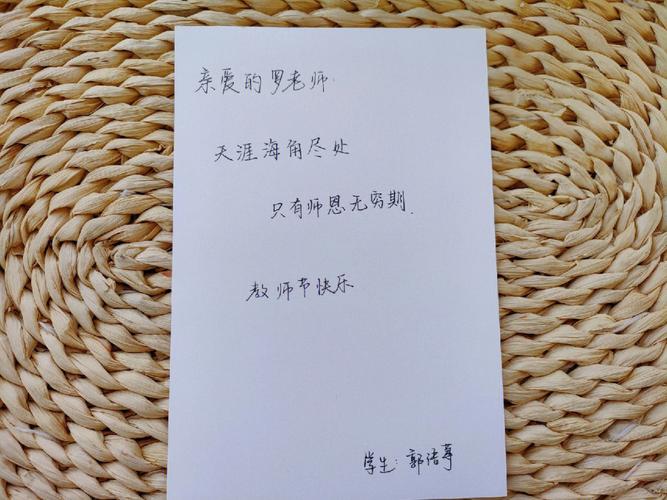 亲爱的罗老师
天涯海角尽处
只有师恩无穷期.
教师节快乐
学生:郭